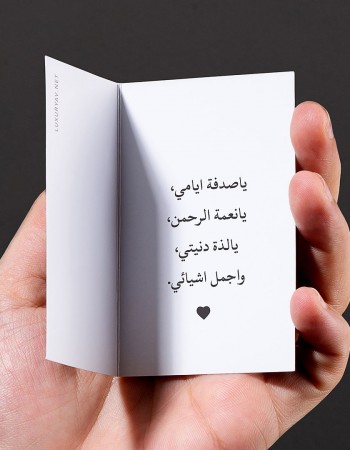 ياصدفة ايامي،
يانعمة الرحمن،
يالذة دنيتي،
واجمل اشيائي.